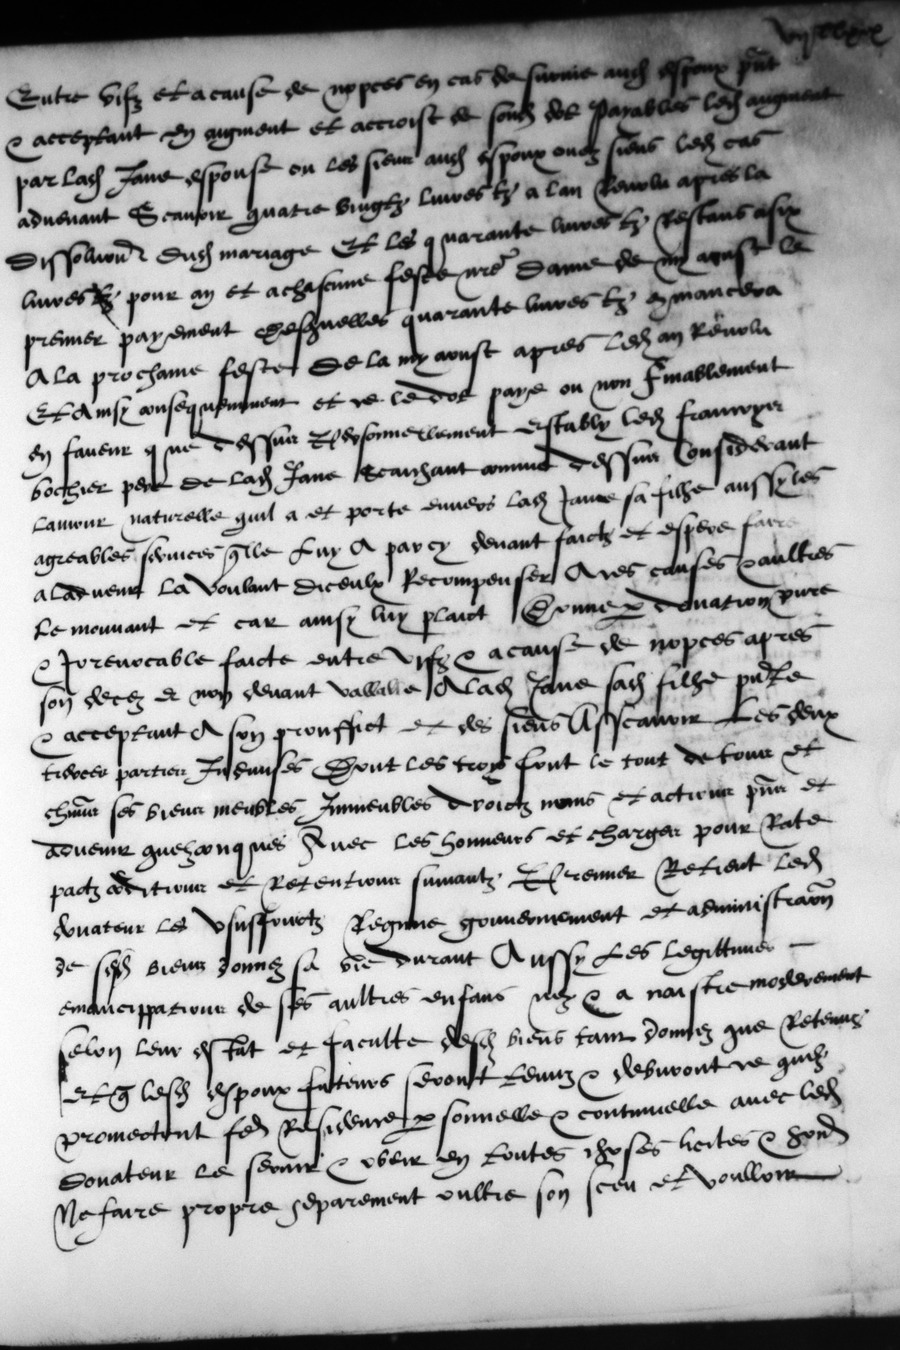 Entre vifz et a cause de nopces en cas de survie aud espoux pnt
& acceptant en augment et accroist de sond dot payables led augment
par lad Jane espouse ou les siens aud espoux ou siens led cas
advenant Scavoir quatre vingtz livres tz a lan revolu apres la
dissolution dud mariage Et les quarante livres tz restans a six
livres tz pour an et a chascune feste nre Dame de my aoust le
premier payement desquelles quarante livres tz commancera
A la prochaine feste De la my aoust apres led an Revolu
Et Ainsy consequemment et ce le dot paye ou non Finablement
en faveur que dessus personnellement estably led francoys
bochier pere de lad Jane Scaichant comme dessus Considerant
lamour naturelle quil a et porte envers lad Jane sa filhe aussy les
agreables services qlle luy A par cy devant faictz et espere faire
a ladvenir La voulant diceulx Recompenser A ces causes & aultres
le mouvant et car ainsy luy plaict Donne p donation pure
& Irrevocable faicte entre vifz & a cause de nopces apres
son decez et non devant vallable A lad Jane sad filhe pnte
& acceptant A son prouffict et des siens Asscavoir Les deux
tierces parties Indivises Dont les troys font le tout de tous et
chuns ses biens meubles Immeubles droictz noms et actions pns et
advenir quelzconques Avec les honneurs et charges pour Rate
pactz conditions et Retentions suivantz Premier Retient led
donateur les Ususfruictz Regime gouvernement et administraon
de sesd biens donnez sa vie durant Aussy Les legittimes
emancippations de ses aultres enfans nez & a naistre moderement
selon leur estat et faculte desd biens tant donnez que Retenuz
Et q lesd espoux futeurs seront tenuz & debvront ce quilz
promectent fere Residence p sonnelle & continuelle avec led
Donateur le servir & obeir en toutes choses licites & hon
Ne faire propre separement oultre son sceu et voulloir